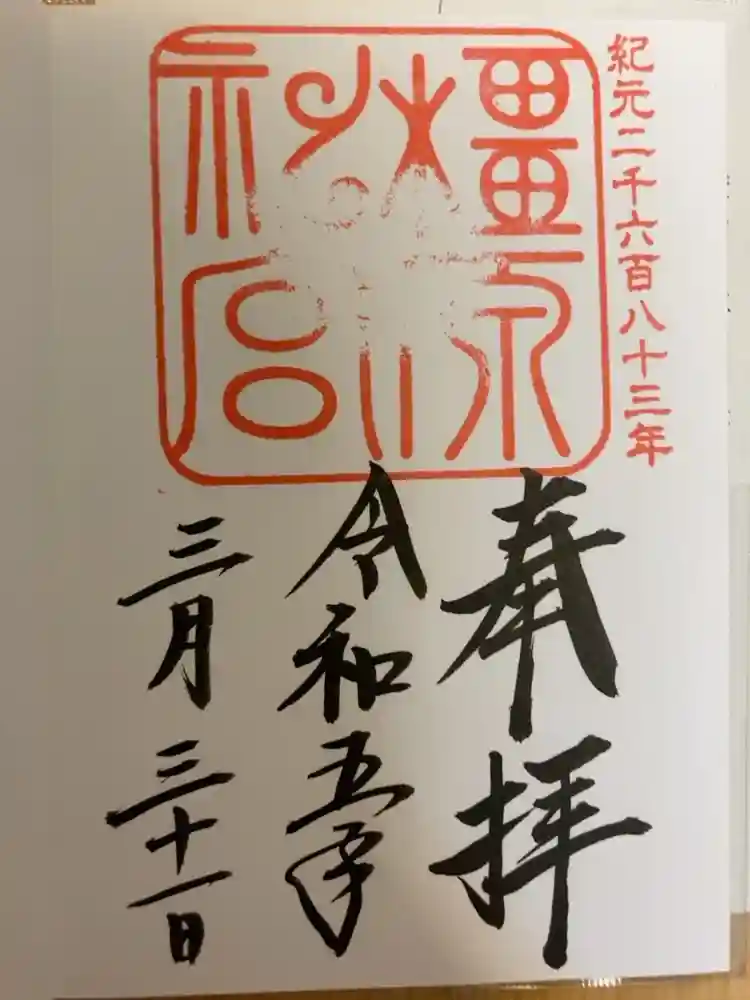 紀元二千六百八十三年
橿原神宮
奉拝
令和五年
三月三十一日